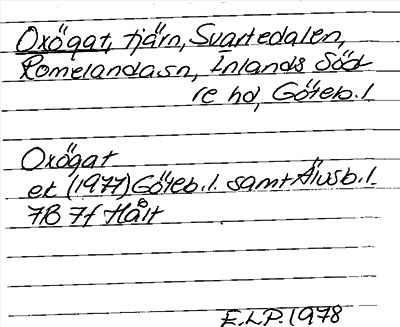 Oxögat, tjärn, Svartedalen,
Romelanda sn, Inlands Söd
re hd, Göteb. l.
Oxögat
ek (1977) Göteb. l. samt Älvsb. l.
7B 7f Hålt
E.L.P. 1978